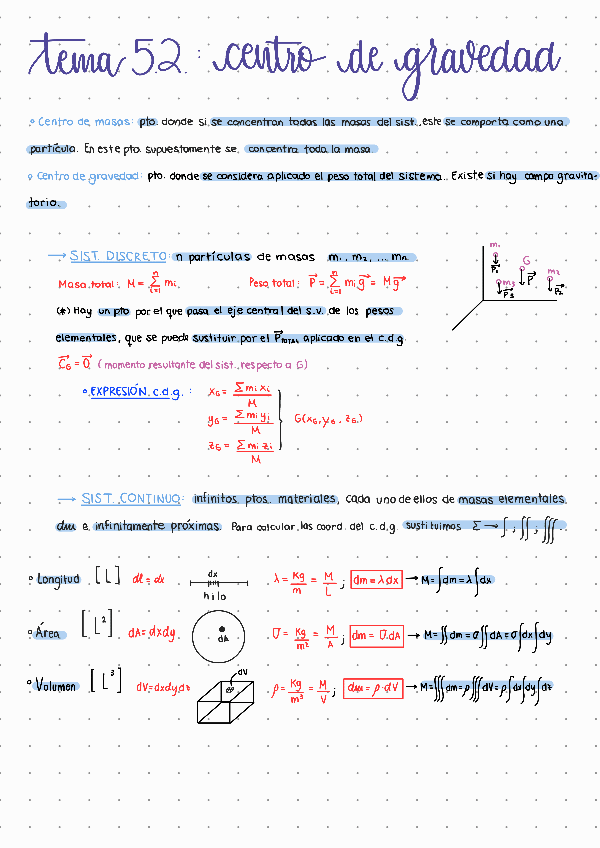 tema 5.2.: centro de gravedad
° Centro de masas: pto. donde si se concentran todas las masas del sist., este se comporta como una
partícula. En este pto. supuestamente se concentra toda la masa
° Centro de gravedad: pto. donde se considera aplicado el peso total del sistema. Existe si hay campo gravita-
torio.
→ SIST. DISCRETO: n partículas de masas m₁, m₂, ... mₙ
Masa total: M = Σ mᵢ (i=1, n) Peso total: P⃗ = Σ mᵢg⃗ (i=1, n) = Mg⃗
m₁ P₁ G P⃗ m₂ P₂ m₃ P₃
(*) Hay un pto por el que pasa el eje central del s.v. de los pesos
elementales, que se puede sustituir por el P⃗TOTAL aplicado en el c.d.g
C⃗G = 0⃗ (momento resultante del sist. respecto a G)
° EXPRESIÓN c.d.g.: xG = Σmᵢxᵢ / M
yG = Σmᵢyᵢ / M G(xG, yG, zG)
zG = Σmᵢzᵢ / M
→ SIST. CONTINUO: infinitos ptos. materiales, cada uno de ellos de masas elementales
dm e infinitamente próximas. Para calcular las coord. del c.d.g. sustituimos Σ → ∫, ∬, ∭.
° Longitud [L] dl = dx dx hilo λ = Kg/m = M/L ; dm = λdx → M = ∫dm = λ∫dx
° Área [L²] dA = dxdy dA σ = Kg/m² = M/A ; dm = σ.dA → M = ∬dm = σ∬dA = σ∫dx∫dy
° Volumen [L³] dV = dxdydz dV ρ = Kg/m³ = M/V ; dm = ρ·dV → M = ∭dm = ρ∭dV = ρ∫dx∫dy∫dz